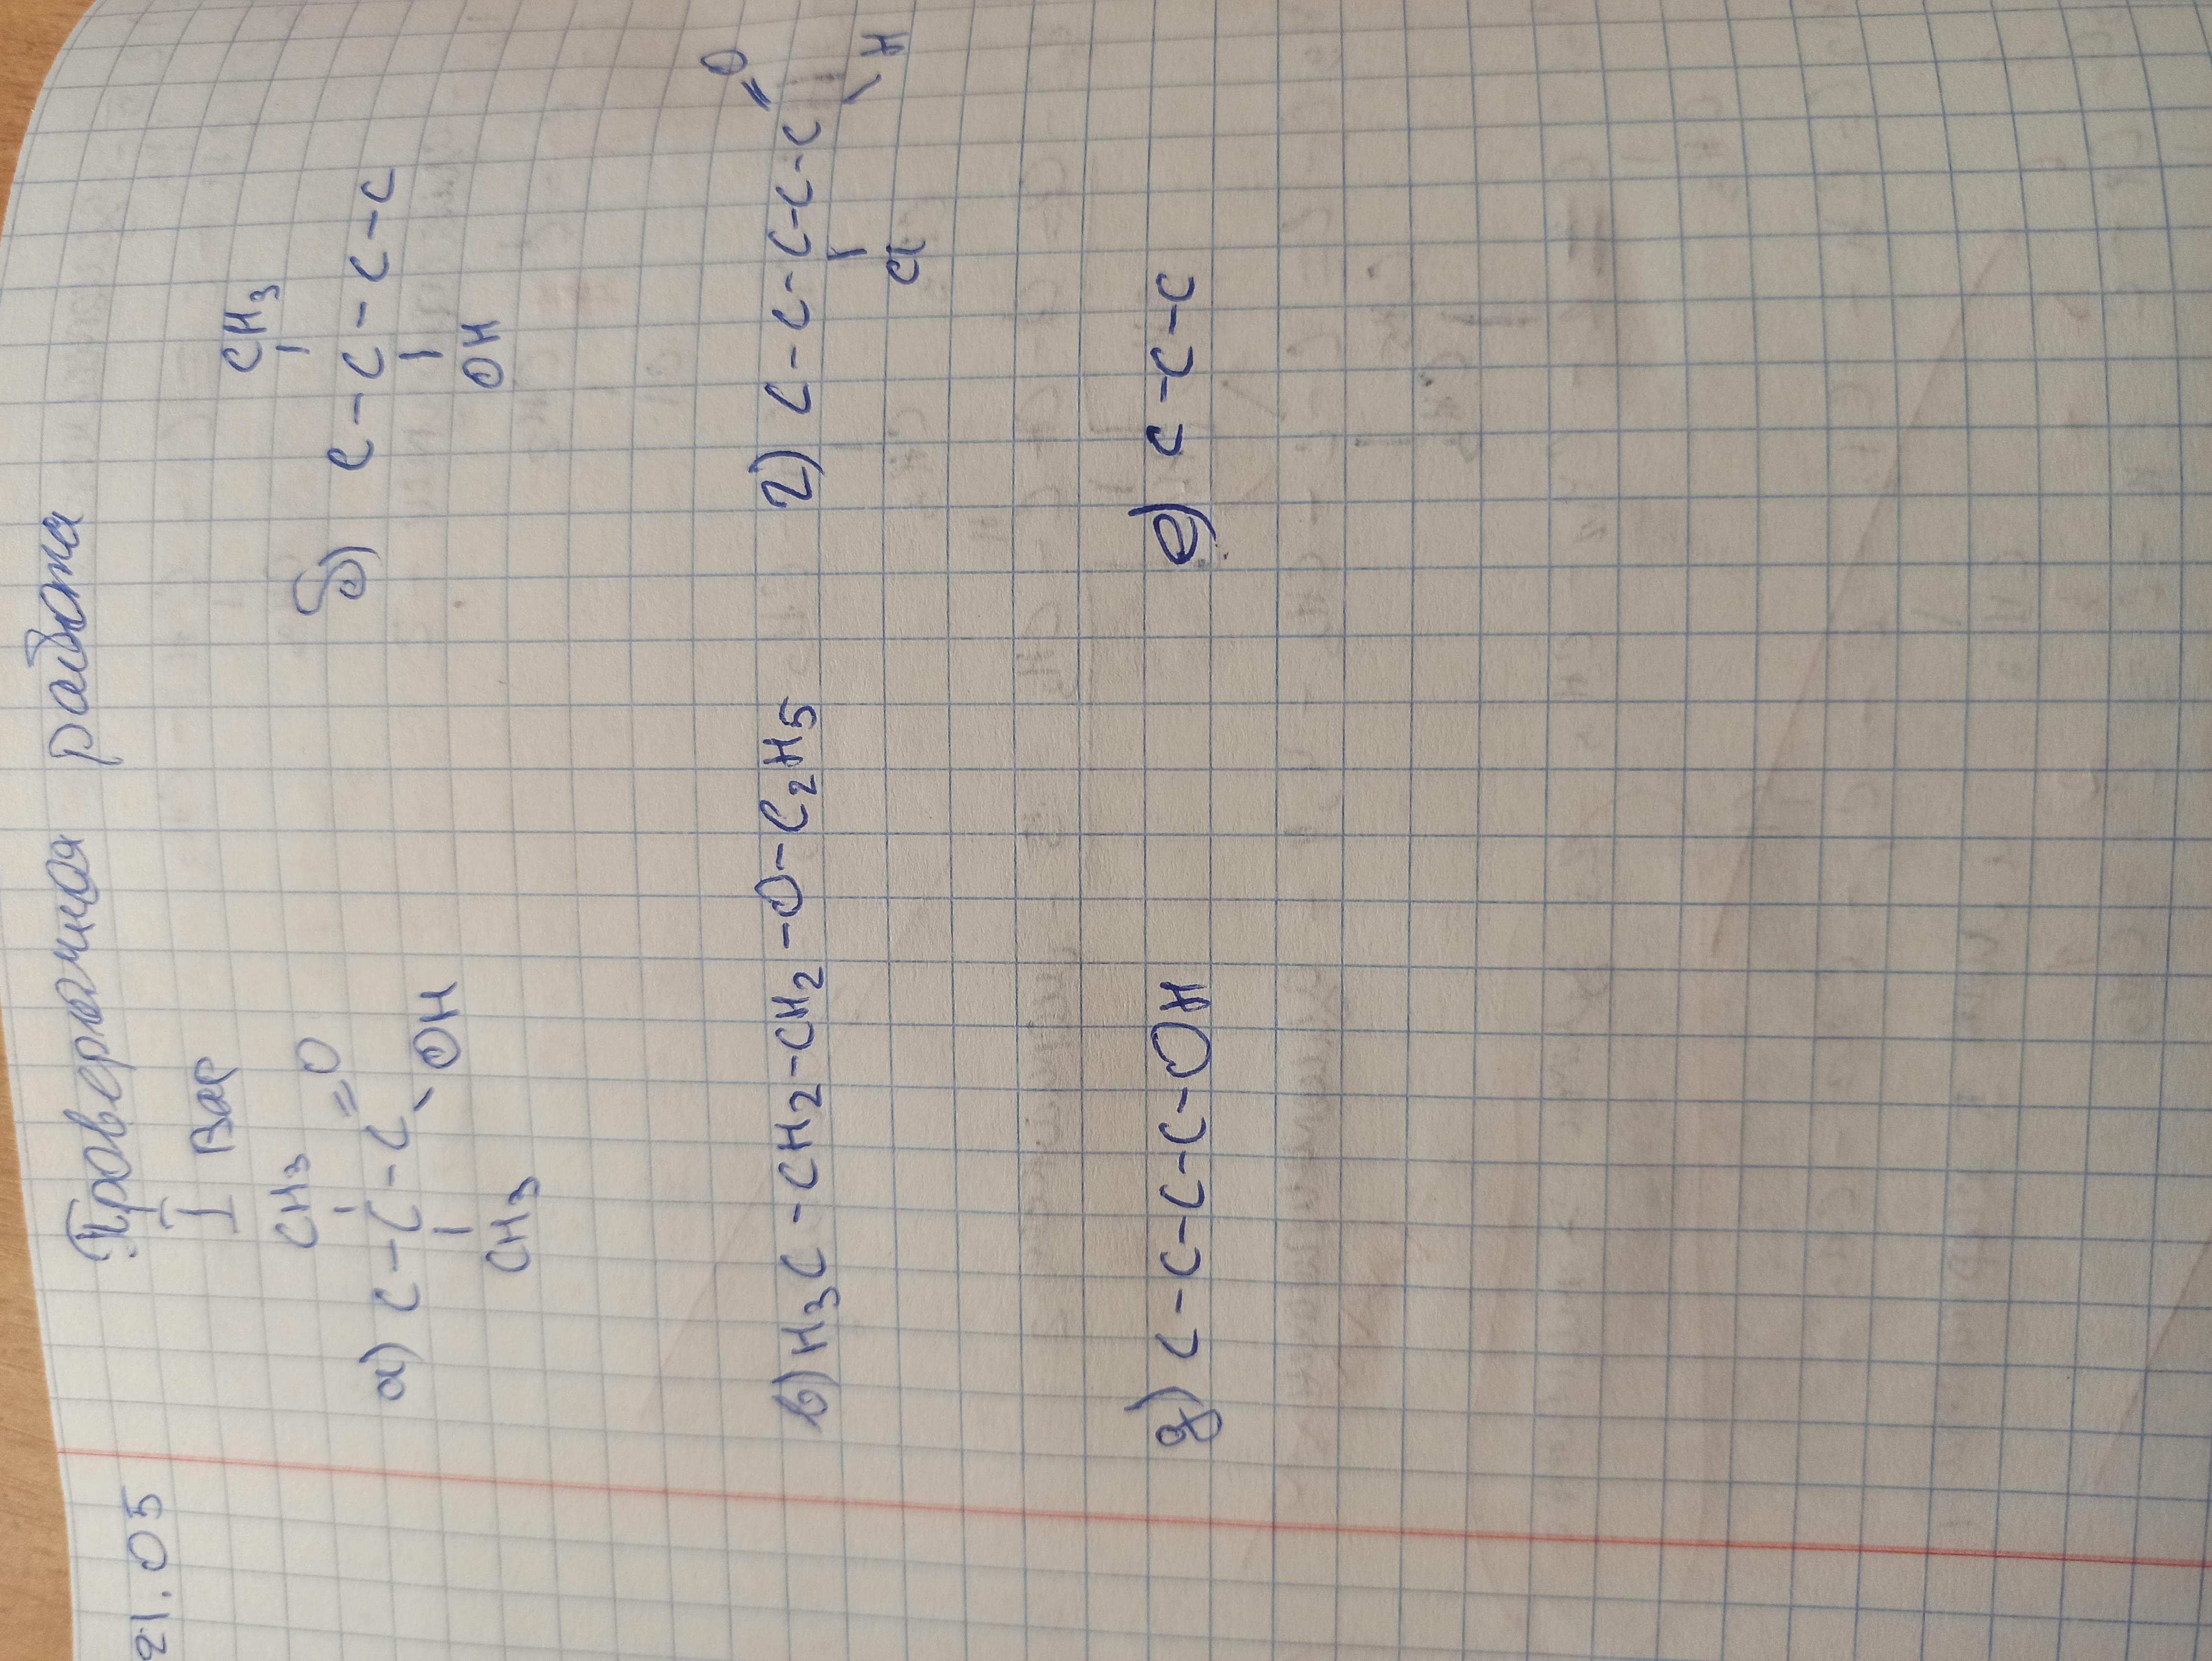 21.05 Проверочная работа
I Вар
CH3 CH3
а) C-C-C=O б) C-C-C-C
OH OH
CH3
в) H3C-CH2-CH2-O-C2H5 г) C-C-C-C-C=O
Cl H
д) C-C-C-C-OH е) C-C-C